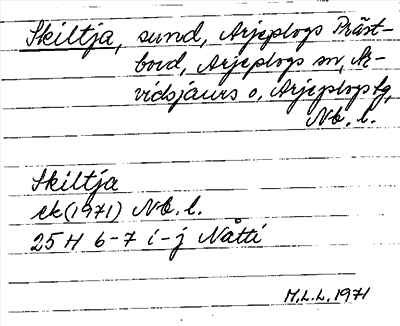 Skiltja, sund, Arjeplogs Präst-
bord, Arjeplogs sn, Ar-
vidsjaurs o. Arjeplogs tg,
Nb. l.
Skiltja
ek (1971) Nb. l.
25 H 6-7 i-j Nåtti
M.L.L. 1971